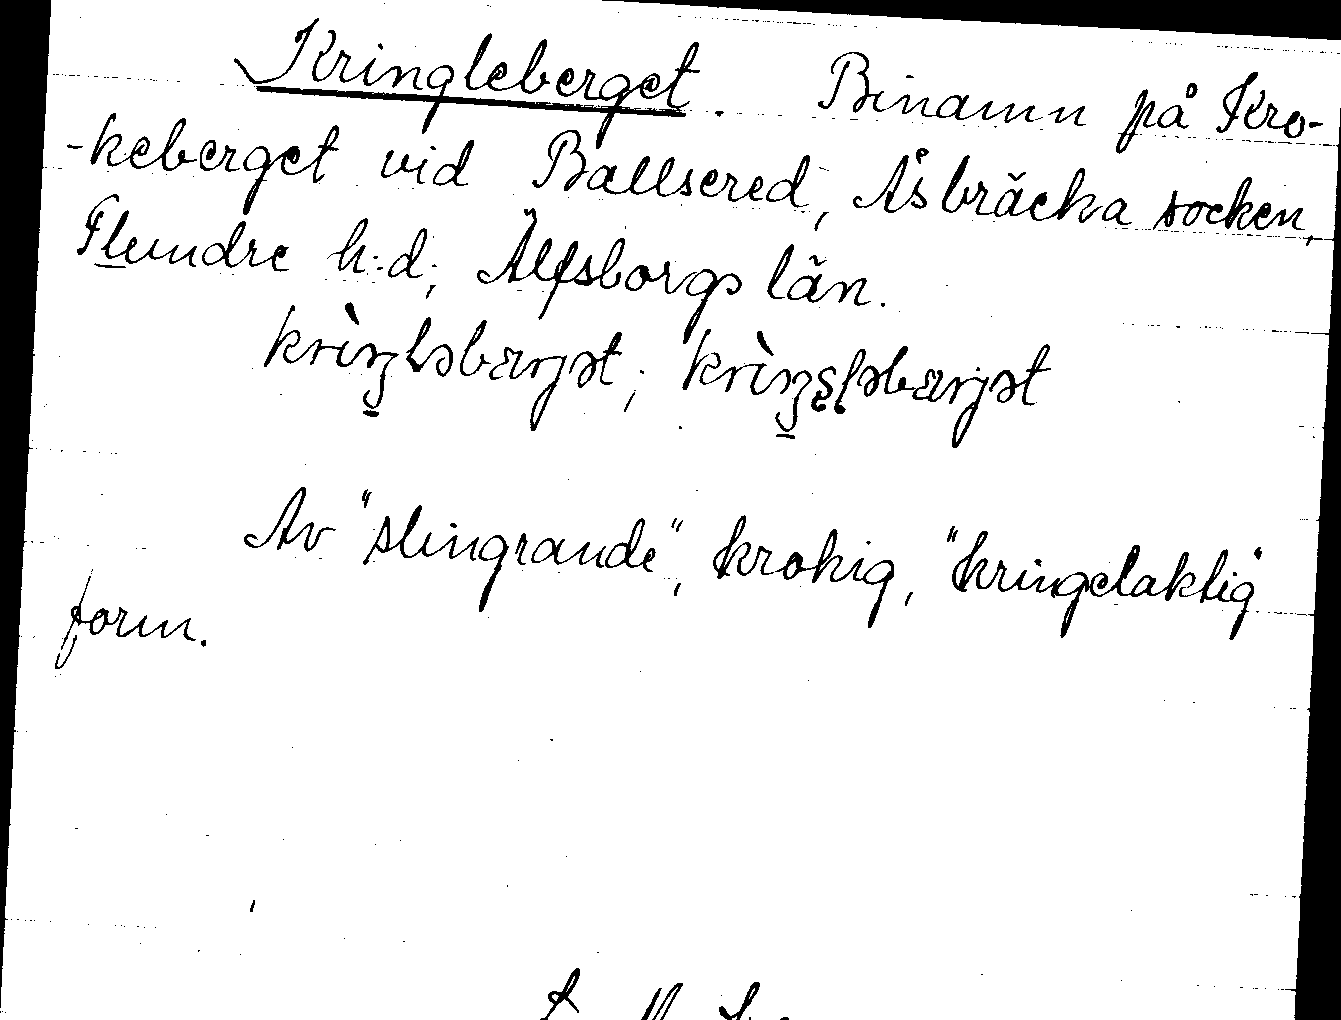 Kringleberget. Binamn på Kro-
-keberget vid Ballsered, Åsbräcka socken,
Flundre h:d, Älfsborgs län.
Av "slingrande", krokig, "kringelaktig"
form.